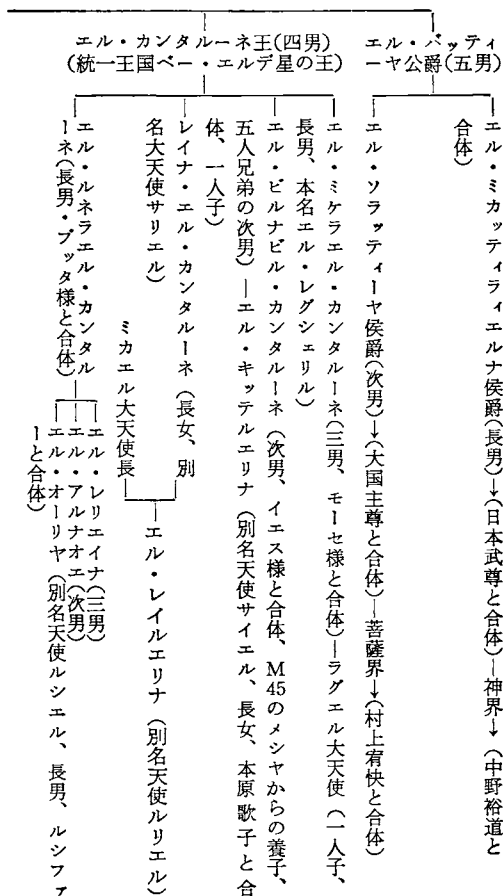 エル・バッティ
ーヤ公爵(五男)
エル・ミカッティラィエルナ侯爵(長男)→(日本武尊と合体)―神界→(中野裕道と
合体)
エル・ソラッティーヤ侯爵(次男)→(大国主尊と合体)―菩薩界→(村上宥快と合体)
エル・カンタルーネ王(四男)
(統一王国ベー・エルデ星の王)
エル・ミケラエル・カンタルーネ(三男、モーセ様と合体)―ラグエル大天使(一人子、
長男、本名エル・レグシェリル)
エル・ビルナビル・カンタルーネ(次男、イエス様と合体、M45のメシヤからの養子、
五人兄弟の次男)―エル・キッテルエリナ(別名天使サイエル、長女、本原歌子と合
体、一人子)
レイナ・エル・カンタルーネ(長女、別
名大天使サリエル)
ミカエル大天使長
エル・レイルエリナ(別名天使ルリエル)
エル・ルネラエル・カンタル
ーネ(長男・ブッタ様と合体)
エル・レリエイナ(三男)
エル・アルナオエ(次男)
エル・オーリヤ(別名天使ルシエル、長男、ルシファ
ーと合体)